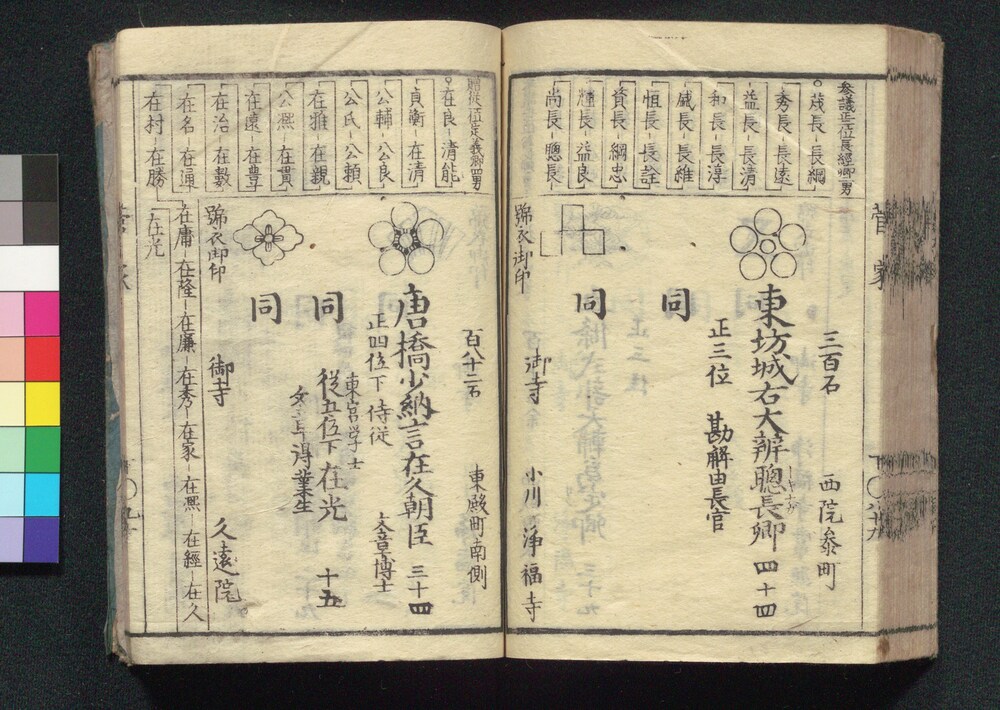 菅家
参議正二位長經卿男
茂長-長綱
秀長-長遠
益長-長清
和長-長淳
盛長-長維
恒長-長詮
資長-綱忠
輝長-益良
尚長-聰長
三百石
西院参町
東坊城右大辨聰長卿
四十四
正三位
勘解由長官
同
同
號衣御印
御寺
小川浄福寺
贈従二位定義卿四男
在良-清能
貞衡-在清
公輔-公良
公氏-公頼
在雅-在親
公凞-在貫
在遠-在豊
在治-在數
在名-在通
在村-在勝
在庸-在隆-在廉-在秀-在家-在凞-在經-在久
在光
百八十二石
東殿町南側
唐橋少納言在久朝臣
三十四
正四位下
侍従
東宮学士
文章博士
同
従五位下在光
十五
文章得業生
同
號衣御印
御寺
久遠院